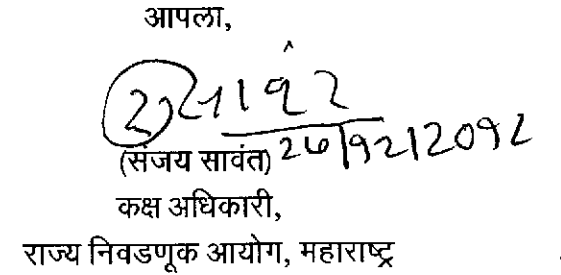 आपला,
(संजय सावंत) २७/१२/२०१८
कक्ष अधिकारी,
राज्य निवडणूक आयोग, महाराष्ट्र